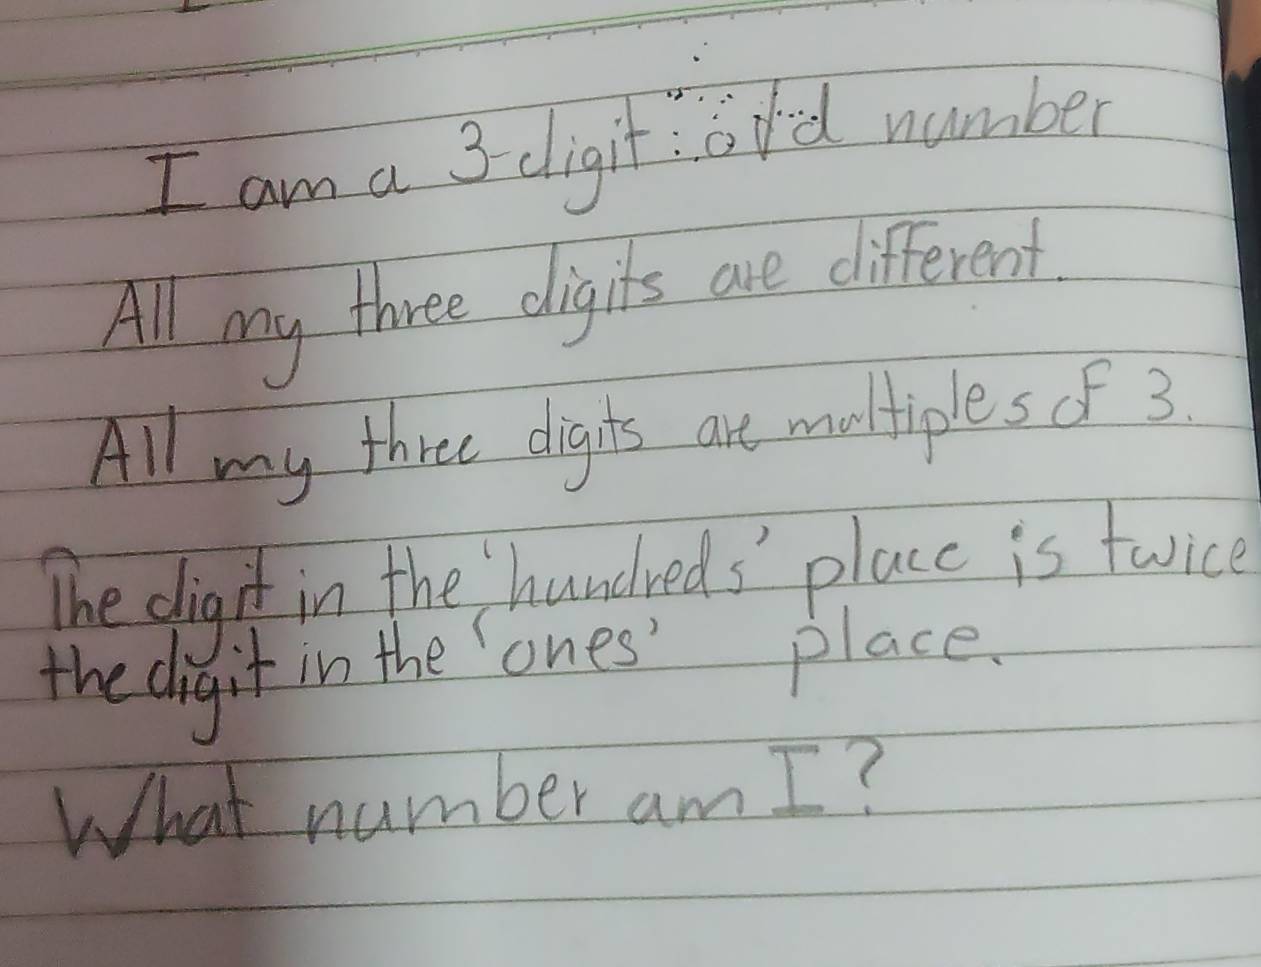 I am a 3-digit odd number
All my three digits are different.
All my three digits are multiples of 3.
The digit in the 'hundreds' place is twice
the digit in the 'ones' place.
What number am I?